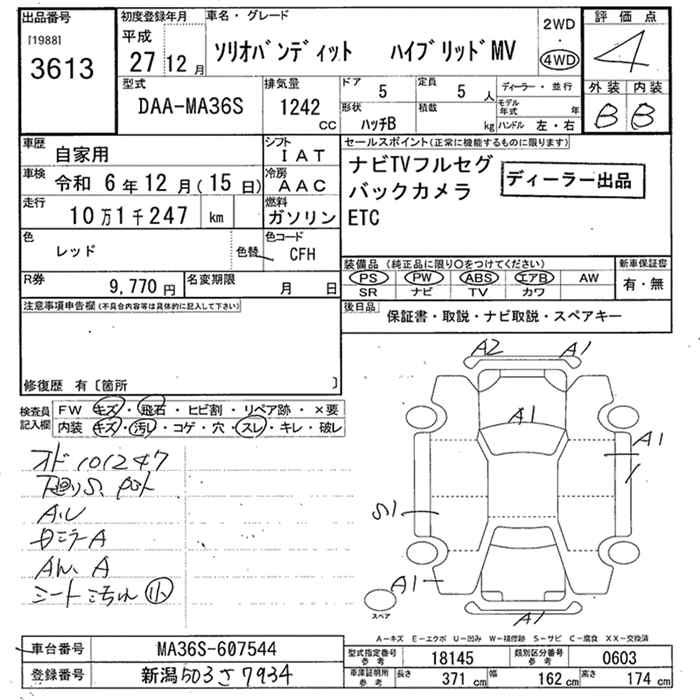 出品番号
[1988]
3613
初度登録年月
平成
27 12 月
車名・グレード
ソリオバンディット ハイブリッドMV
2WD
・
4WD
評価点
4
外装 内装
B B
型式
DAA-MA36S
排気量
1242 cc
ドア 5
定員 5 人
ディーラー・並行
モデル年式 年
形状 ハッチB
積載 kg
ハンドル 左・右
車歴 自家用
シフト IAT
車検 令和 6年 12月(15日)
冷房 AAC
走行 10万1千247 km
燃料 ガソリン
色 レッド 色替
色コード CFH
R券 9,770 円
名変期限 月 日
注意事項申告欄(不具合内容等は具体的に記入して下さい)
修復歴 有〔箇所 〕
セールスポイント(正常に機能するものに限ります)
ナビTVフルセグ
バックカメラ
ETC
ディーラー出品
装備品(純正品に限り○をつけてください)
PS PW ABS エアB AW
SR ナビ TV カワ
新車保証書
有・無
後日品
保証書・取説・ナビ取説・スペアキー
検査員記入欄
FW キズ・飛石・ヒビ割・リペア跡・×要
内装 キズ・汚れ・コゲ・穴・スレ・キレ・破レ
オド101247
A.U
シート
A2 A1
A1
A1
S1
A1
A1
スペア
A-キズ E-エクボ U-凹み W-補修跡 S-サビ C-腐食 XX-交換済
車台番号 MA36S-607544
登録番号 新潟503さ7934
型式指定番号 参考 18145
類別区分番号 参考 0603
車庫証明 参考 長さ 371 cm 幅 162 cm 高さ 174 cm